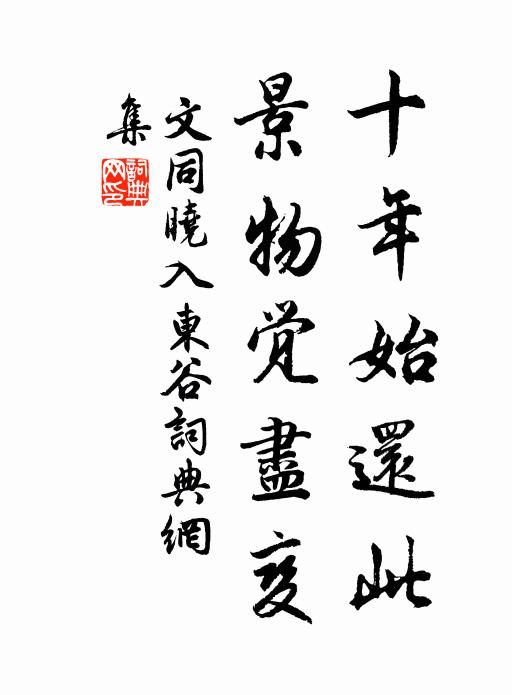 十年始還此
景物覺盡變
文同曉入東谷詞典網
集
詞典網印